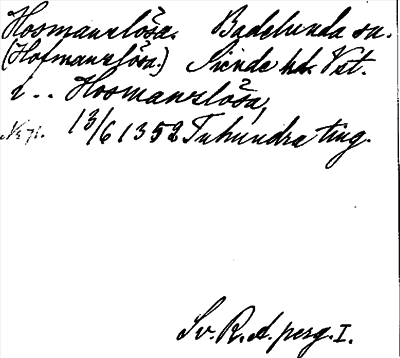 Hosmanslösa. Badelunda sn.
(Hofmanslösa.) Siende hd. Vst.
i .. Hosmanslösa,
N: 71. 13/6 1352 Tuhundra ting.
Sv. R. A. perg. I.